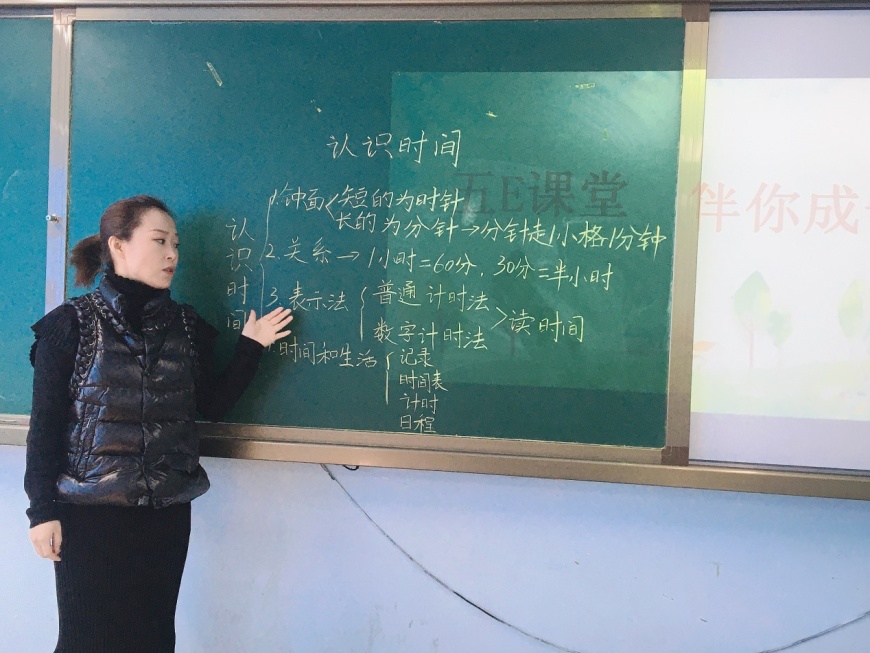 认识时间
五E课堂 伴你成
认识时间
1.钟面 短的为时针
长的为分针→分针走1小格1分钟
2.关系→1小时=60分,30分=半小时
3.表示法 普通计时法
数字计时法 >读时间
时间和生活 记录
时间表
计时
日程